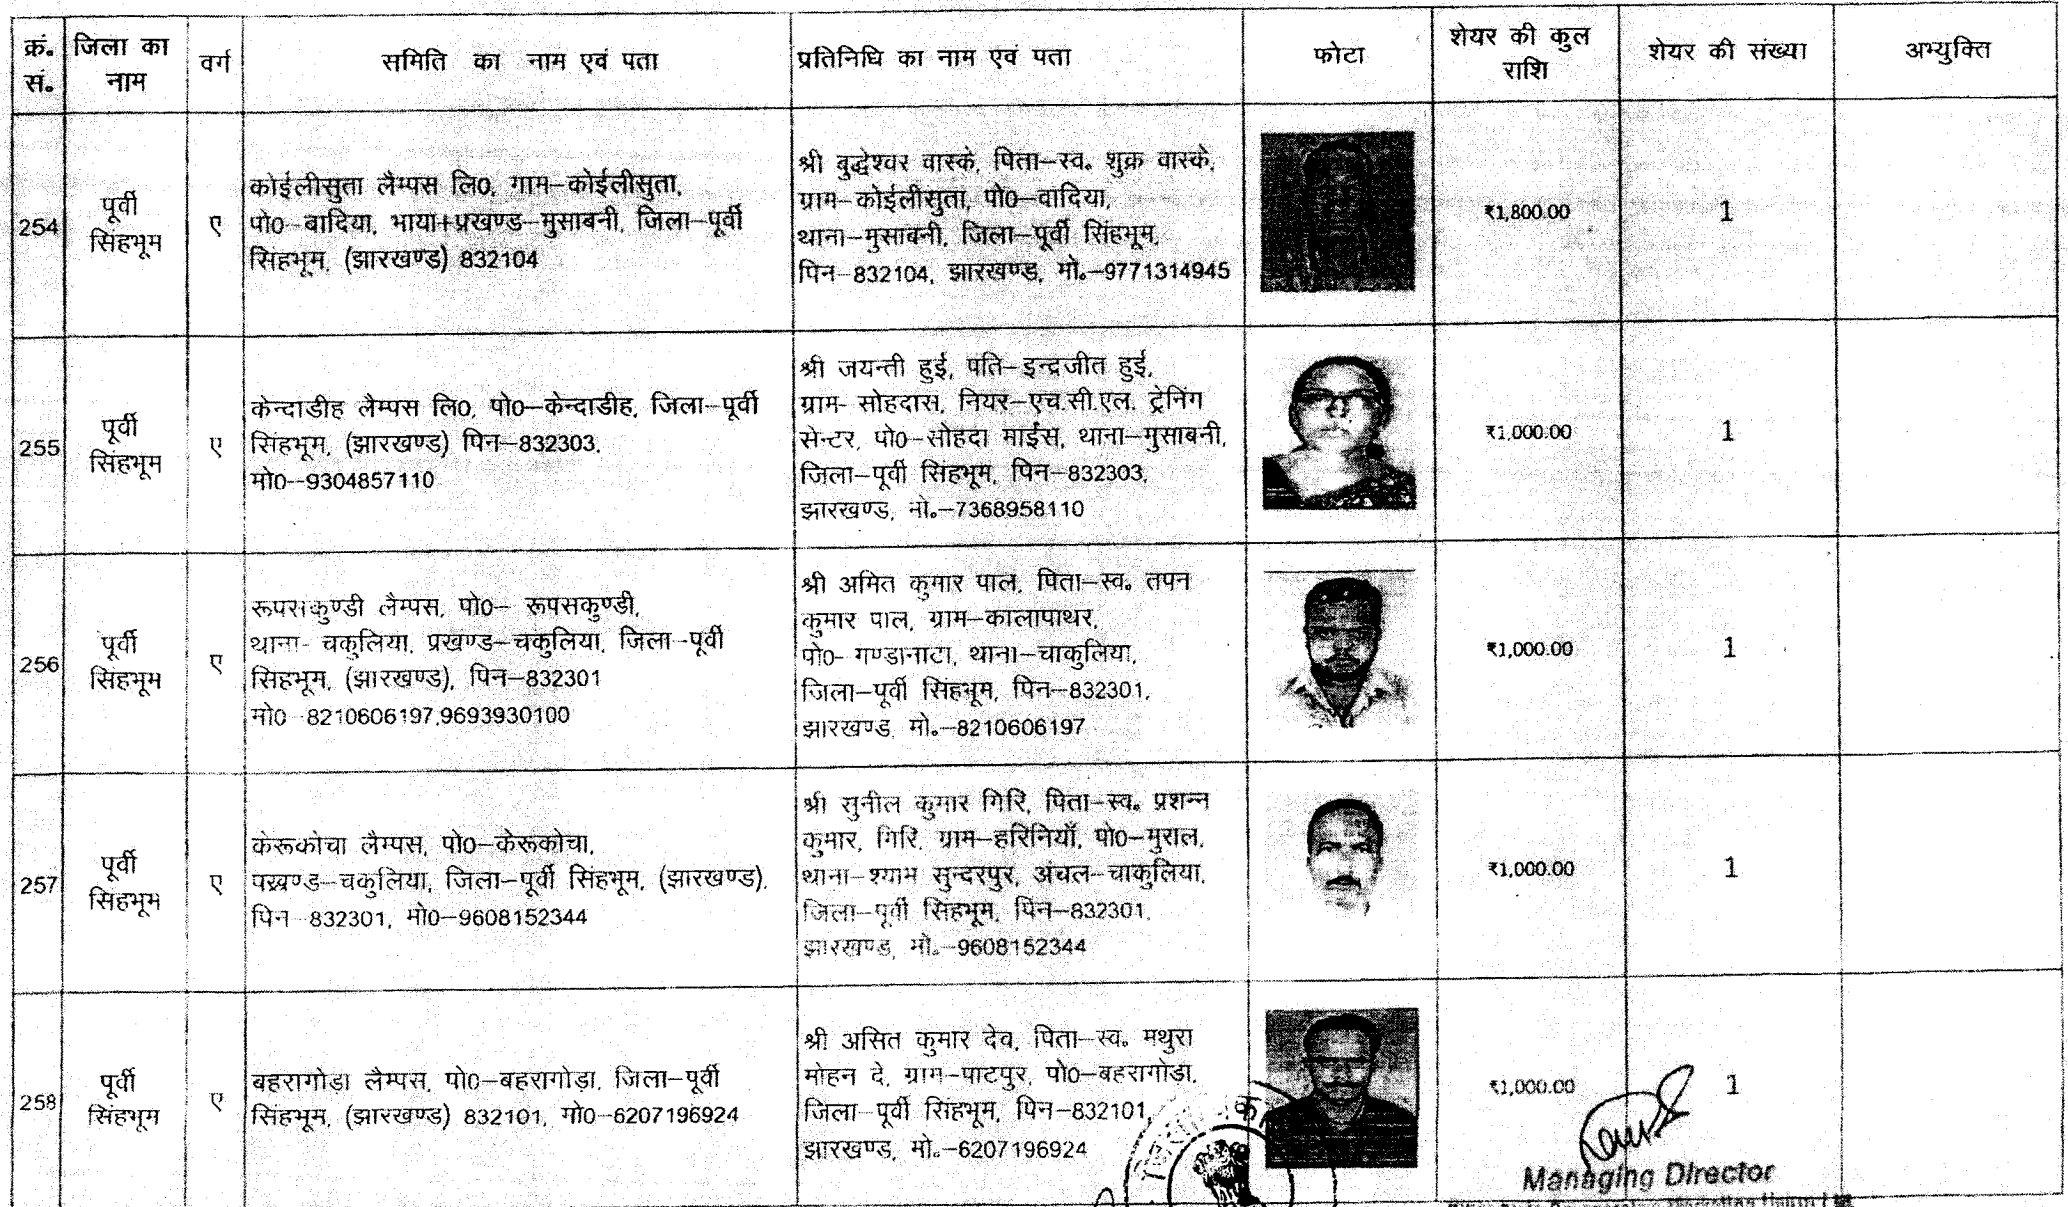 क्रं. सं. | जिला का नाम | वर्ग | समिति का नाम एवं पता | प्रतिनिधि का नाम एवं पता | फोटा | शेयर की कुल राशि | शेयर की संख्या | अभ्युक्ति
254
पूर्वी
सिंहभूम
ए
कोईलीसुता लैम्पस लि0, गाम–कोईलीसुता,
पो0–बादिया, भाया+प्रखण्ड–मुसाबनी, जिला–पूर्वी
सिंहभूम, (झारखण्ड) 832104
श्री बुद्धेश्वर वास्के, पिता–स्व. शुक्र वास्के,
ग्राम–कोईलीसुता, पो0–वादिया,
थाना–मुसाबनी, जिला–पूर्वी सिंहभूम,
पिन–832104, झारखण्ड, मो.–9771314945
₹1,800.00
1
255
पूर्वी
सिंहभूम
ए
केन्दाडीह लैम्पस लि0, पो0–केन्दाडीह, जिला–पूर्वी
सिंहभूम, (झारखण्ड) पिन–832303,
मो0–9304857110
श्री जयन्ती हुई, पति–इन्द्रजीत हुई,
ग्राम– सोहदास, नियर–एच.सी.एल. ट्रेनिंग
सेन्टर, पो0–सोहदा माईंस, थाना–मुसाबनी,
जिला–पूर्वी सिंहभूम, पिन–832303,
झारखण्ड, मो.–7368958110
₹1,000.00
1
256
पूर्वी
सिंहभूम
ए
रूपसकुण्डी लैम्पस, पो0– रूपसकुण्डी,
थाना– चकुलिया, प्रखण्ड–चकुलिया, जिला–पूर्वी
सिंहभूम, (झारखण्ड), पिन–832301
मो0–8210606197,9693930100
श्री अमित कुमार पाल, पिता–स्व. तपन
कुमार पाल, ग्राम–कालापाथर,
पो0– गण्डानाटा, थाना–चाकुलिया,
जिला–पूर्वी सिंहभूम, पिन–832301,
झारखण्ड, मो.–8210606197
₹1,000.00
1
257
पूर्वी
सिंहभूम
ए
केरूकोचा लैम्पस, पो0–केरूकोचा,
पख्रण्ड–चकुलिया, जिला–पूर्वी सिंहभूम, (झारखण्ड),
पिन–832301, मो0–9608152344
श्री सुनील कुमार गिरि, पिता–स्व. प्रशन्न
कुमार, गिरि, ग्राम–हरिनियाँ, पो0–मुराल,
थाना–श्याम सुन्दरपुर, अंचल–चाकुलिया,
जिला–पूर्वी सिंहभूम, पिन–832301,
झारखण्ड, मो.–9608152344
₹1,000.00
1
258
पूर्वी
सिंहभूम
ए
बहरागोड़ा लैम्पस, पो0–बहरागोड़ा, जिला–पूर्वी
सिंहभूम, (झारखण्ड) 832101, मो0–6207196924
श्री असित कुमार देव, पिता–स्व. मथुरा
मोहन दे, ग्राम–पाटपुर, पो0–बहरागोडा,
जिला–पूर्वी सिंहभूम, पिन–832101,
झारखण्ड, मो.–6207196924
₹1,000.00
1
Managing Director